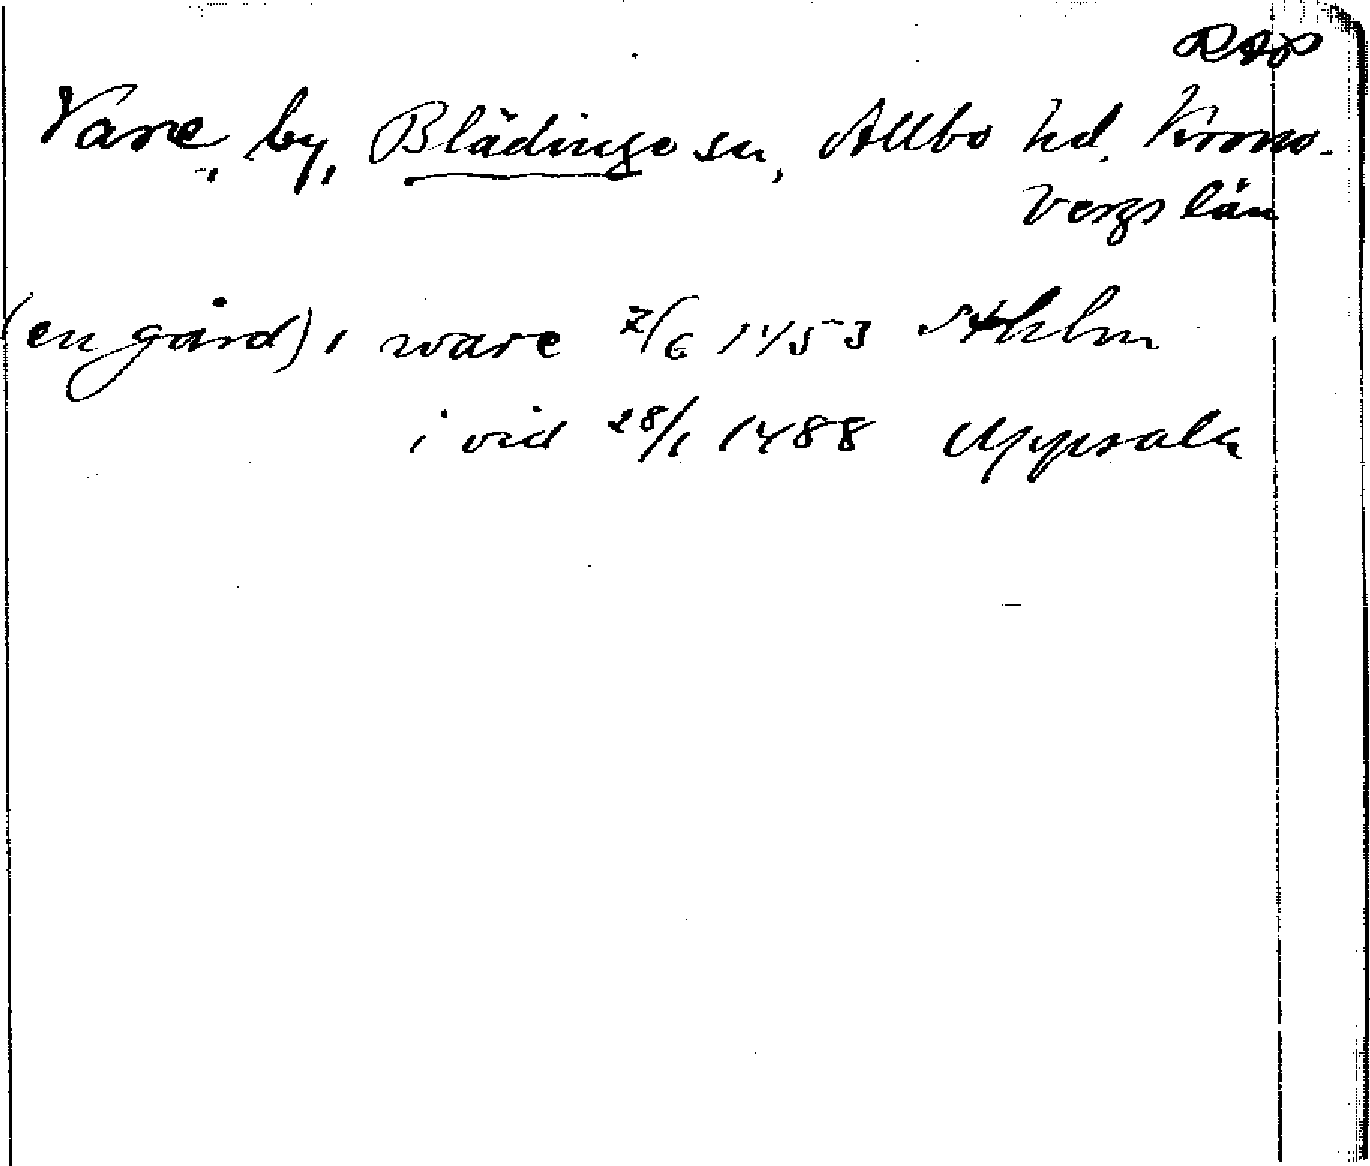 RAP
Vare, by, Blädinge sn, Allbo hd. Krono-
bergs län
(en gård) i ware 2/6 1453 Sthlm
i vid 28/1 1488 Uppsala